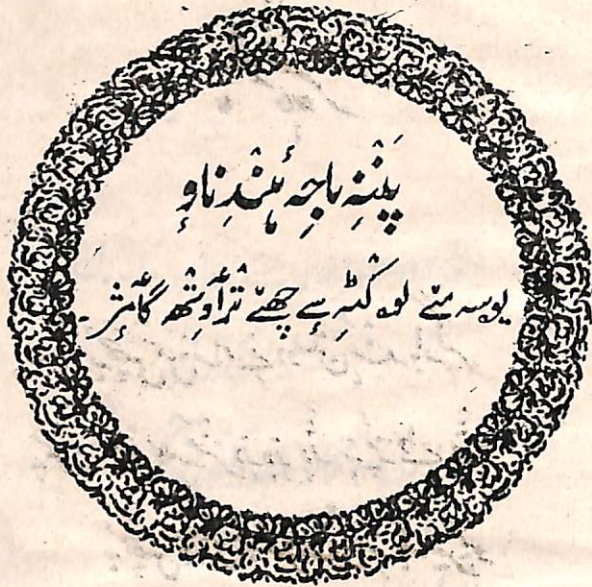 پَننِہ باجہِ ہٕنٛدِ ناوٕ
یوسہ مےٚ لۄکٹہِ ہے چھےٚ ترٛٲوِتھ گٲمٕژ۔